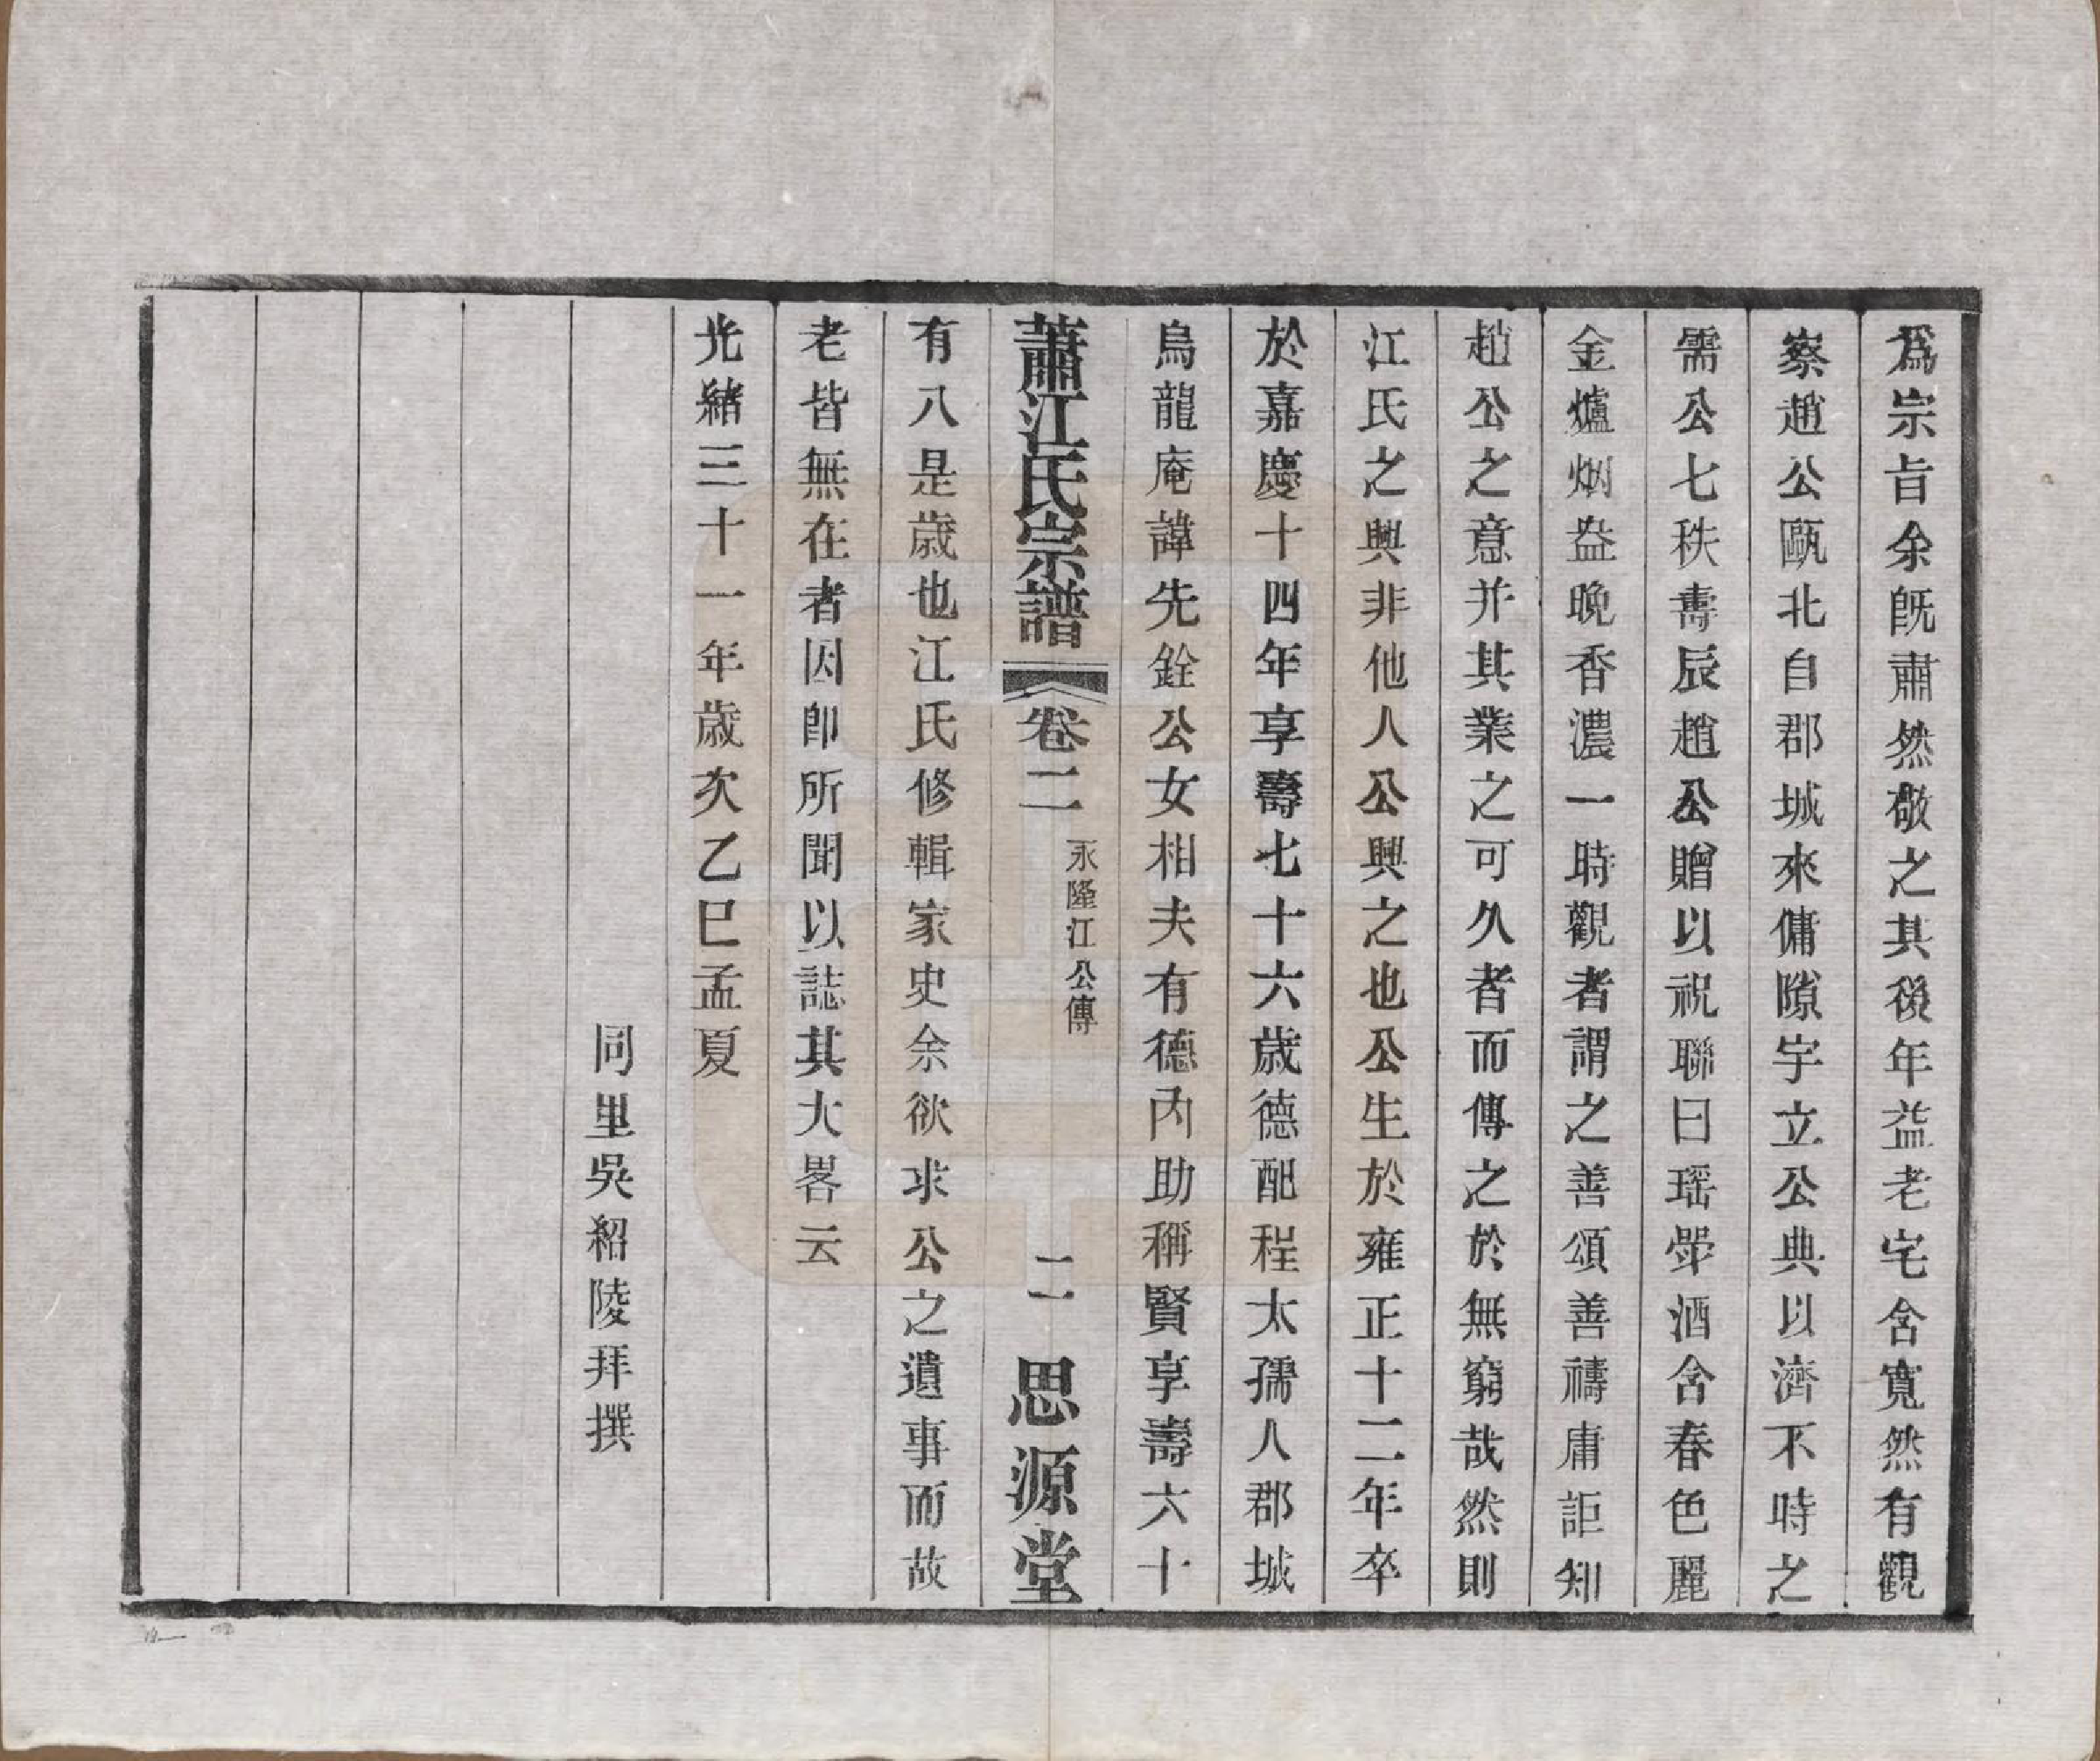 爲宗旨余旣肅然敬之其後年益老宅舍寬然有觀
察趙公甌北自郡城來傭隙宇立公典以濟不時之
需公七秩壽辰趙公贈以祝聯曰瑶斝酒含春色麗
金爐烟益晚香濃一時觀者謂之善頌善禱庸詎知
趙公之意并其業之可久者而傳之於無窮哉然則
江氏之興非他人公興之也公生於雍正十二年卒
於嘉慶十四年享壽七十六歲德配程太孺人郡城
烏龍庵諱先銓公女相夫有德內助稱賢享壽六十
蕭江氏宗譜 卷二 永隆江公傳 二 思源堂
有八是歲也江氏修輯家史余欲求公之遺事而故
老皆無在者因卽所聞以誌其大畧云
光緒三十一年歲次乙巳孟夏
同里吳紹陵拜撰